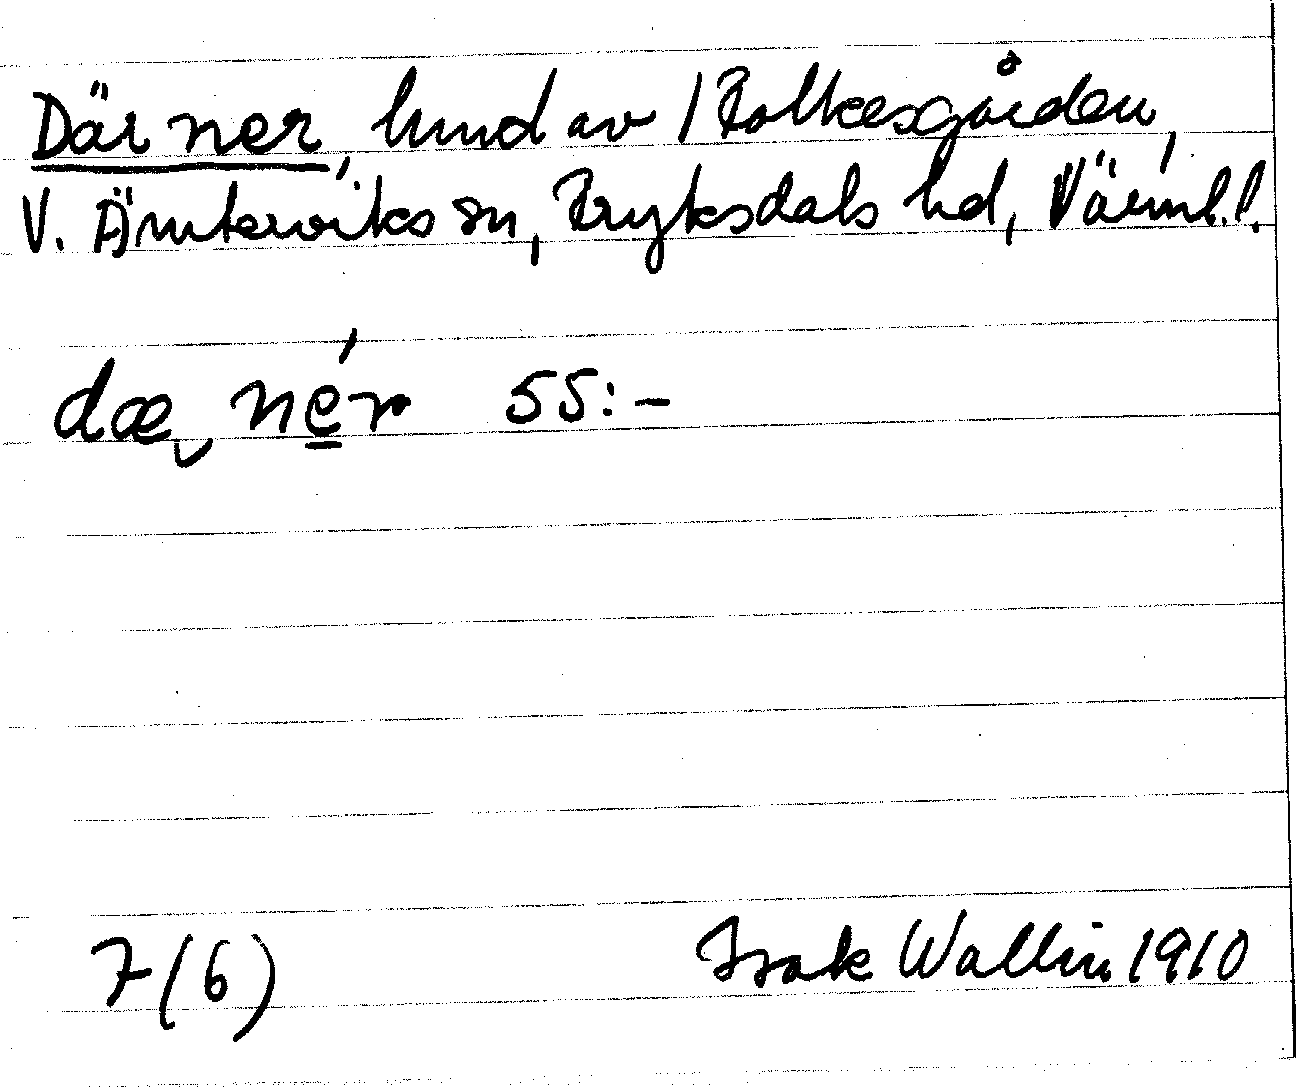 Där ner, lund av / Folkesgården,
V. Ämterviks sn, Fryksdals hd, Värml. l.
dæ ner 55:-
7 (6) Isak Wallin 1910